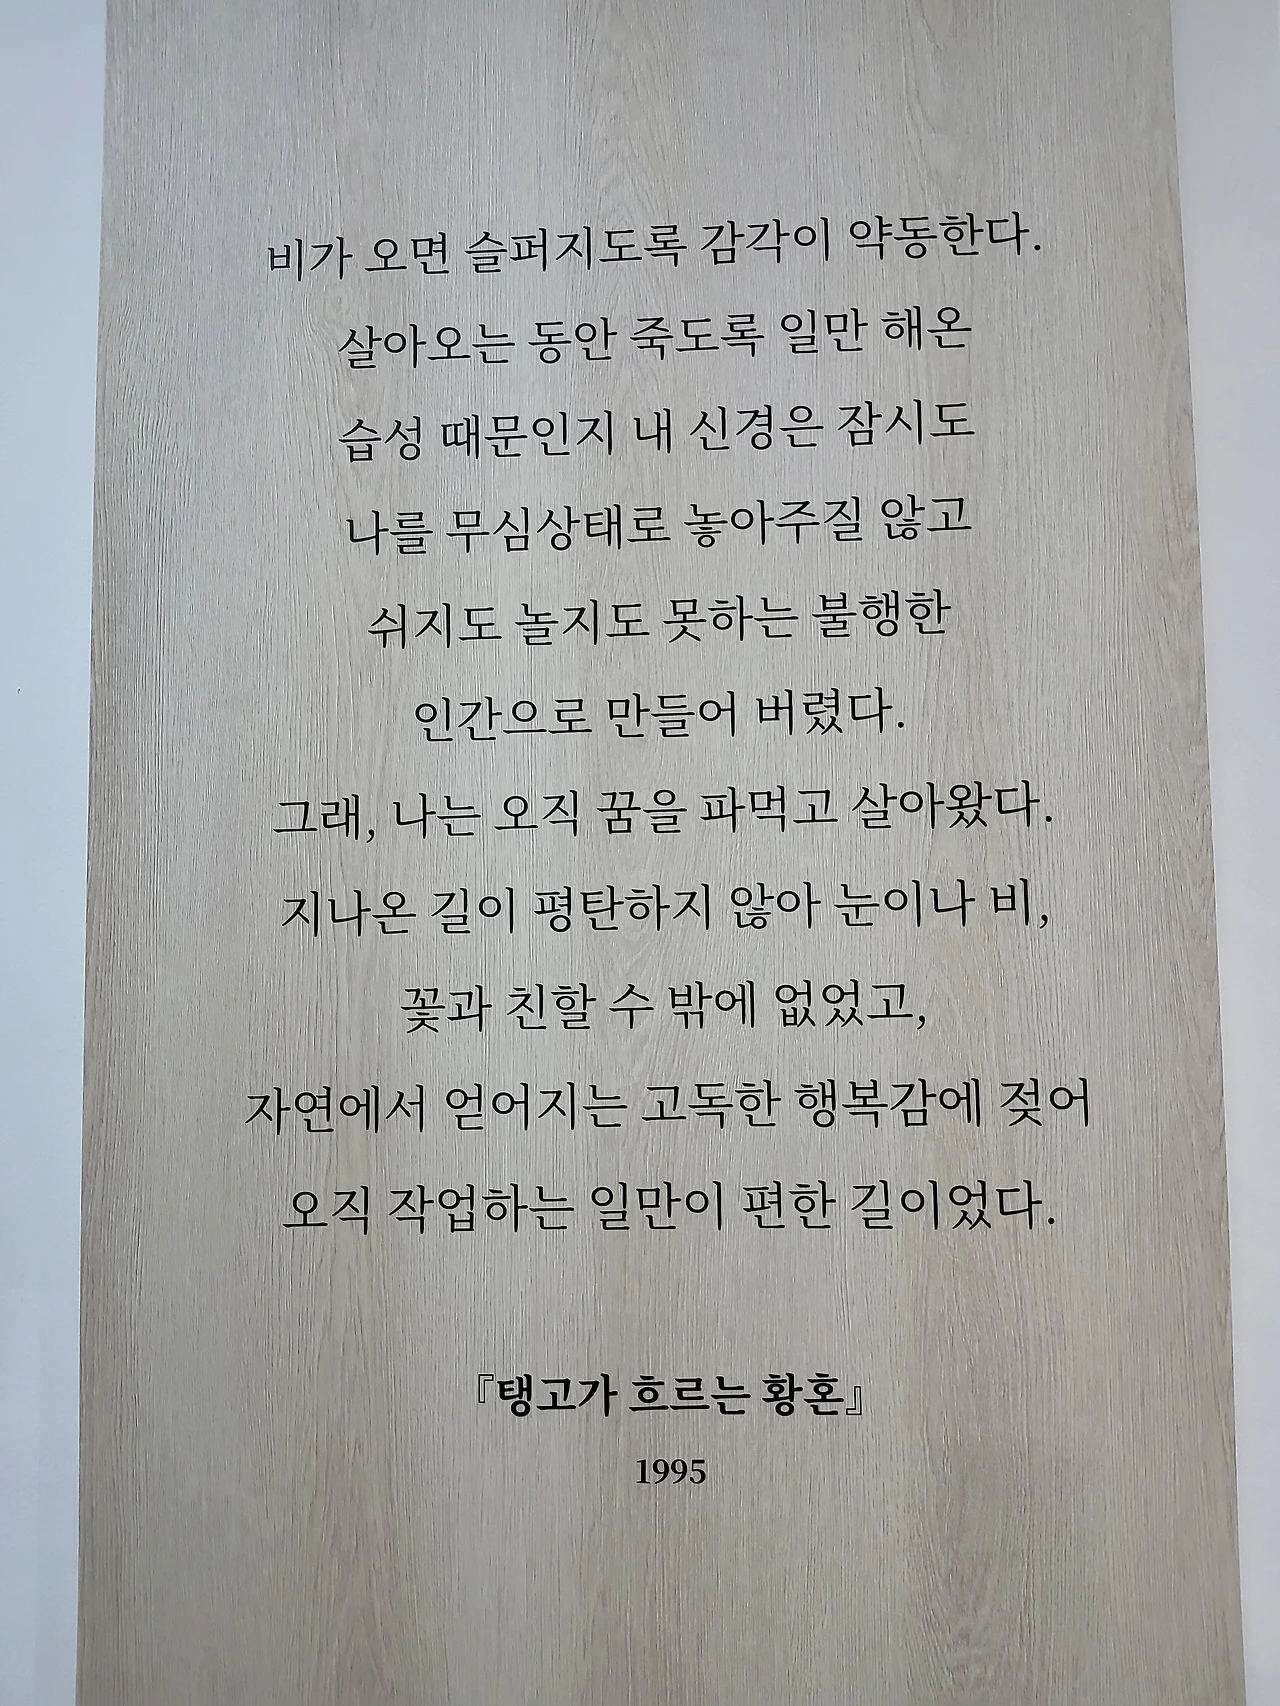 비가 오면 슬퍼지도록 감각이 약동한다.
살아오는 동안 죽도록 일만 해온
습성 때문인지 내 신경은 잠시도
나를 무심상태로 놓아주질 않고
쉬지도 놀지도 못하는 불행한
인간으로 만들어 버렸다.
그래, 나는 오직 꿈을 파먹고 살아왔다.
지나온 길이 평탄하지 않아 눈이나 비,
꽃과 친할 수 밖에 없었고,
자연에서 얻어지는 고독한 행복감에 젖어
오직 작업하는 일만이 편한 길이었다.
『탱고가 흐르는 황혼』
1995